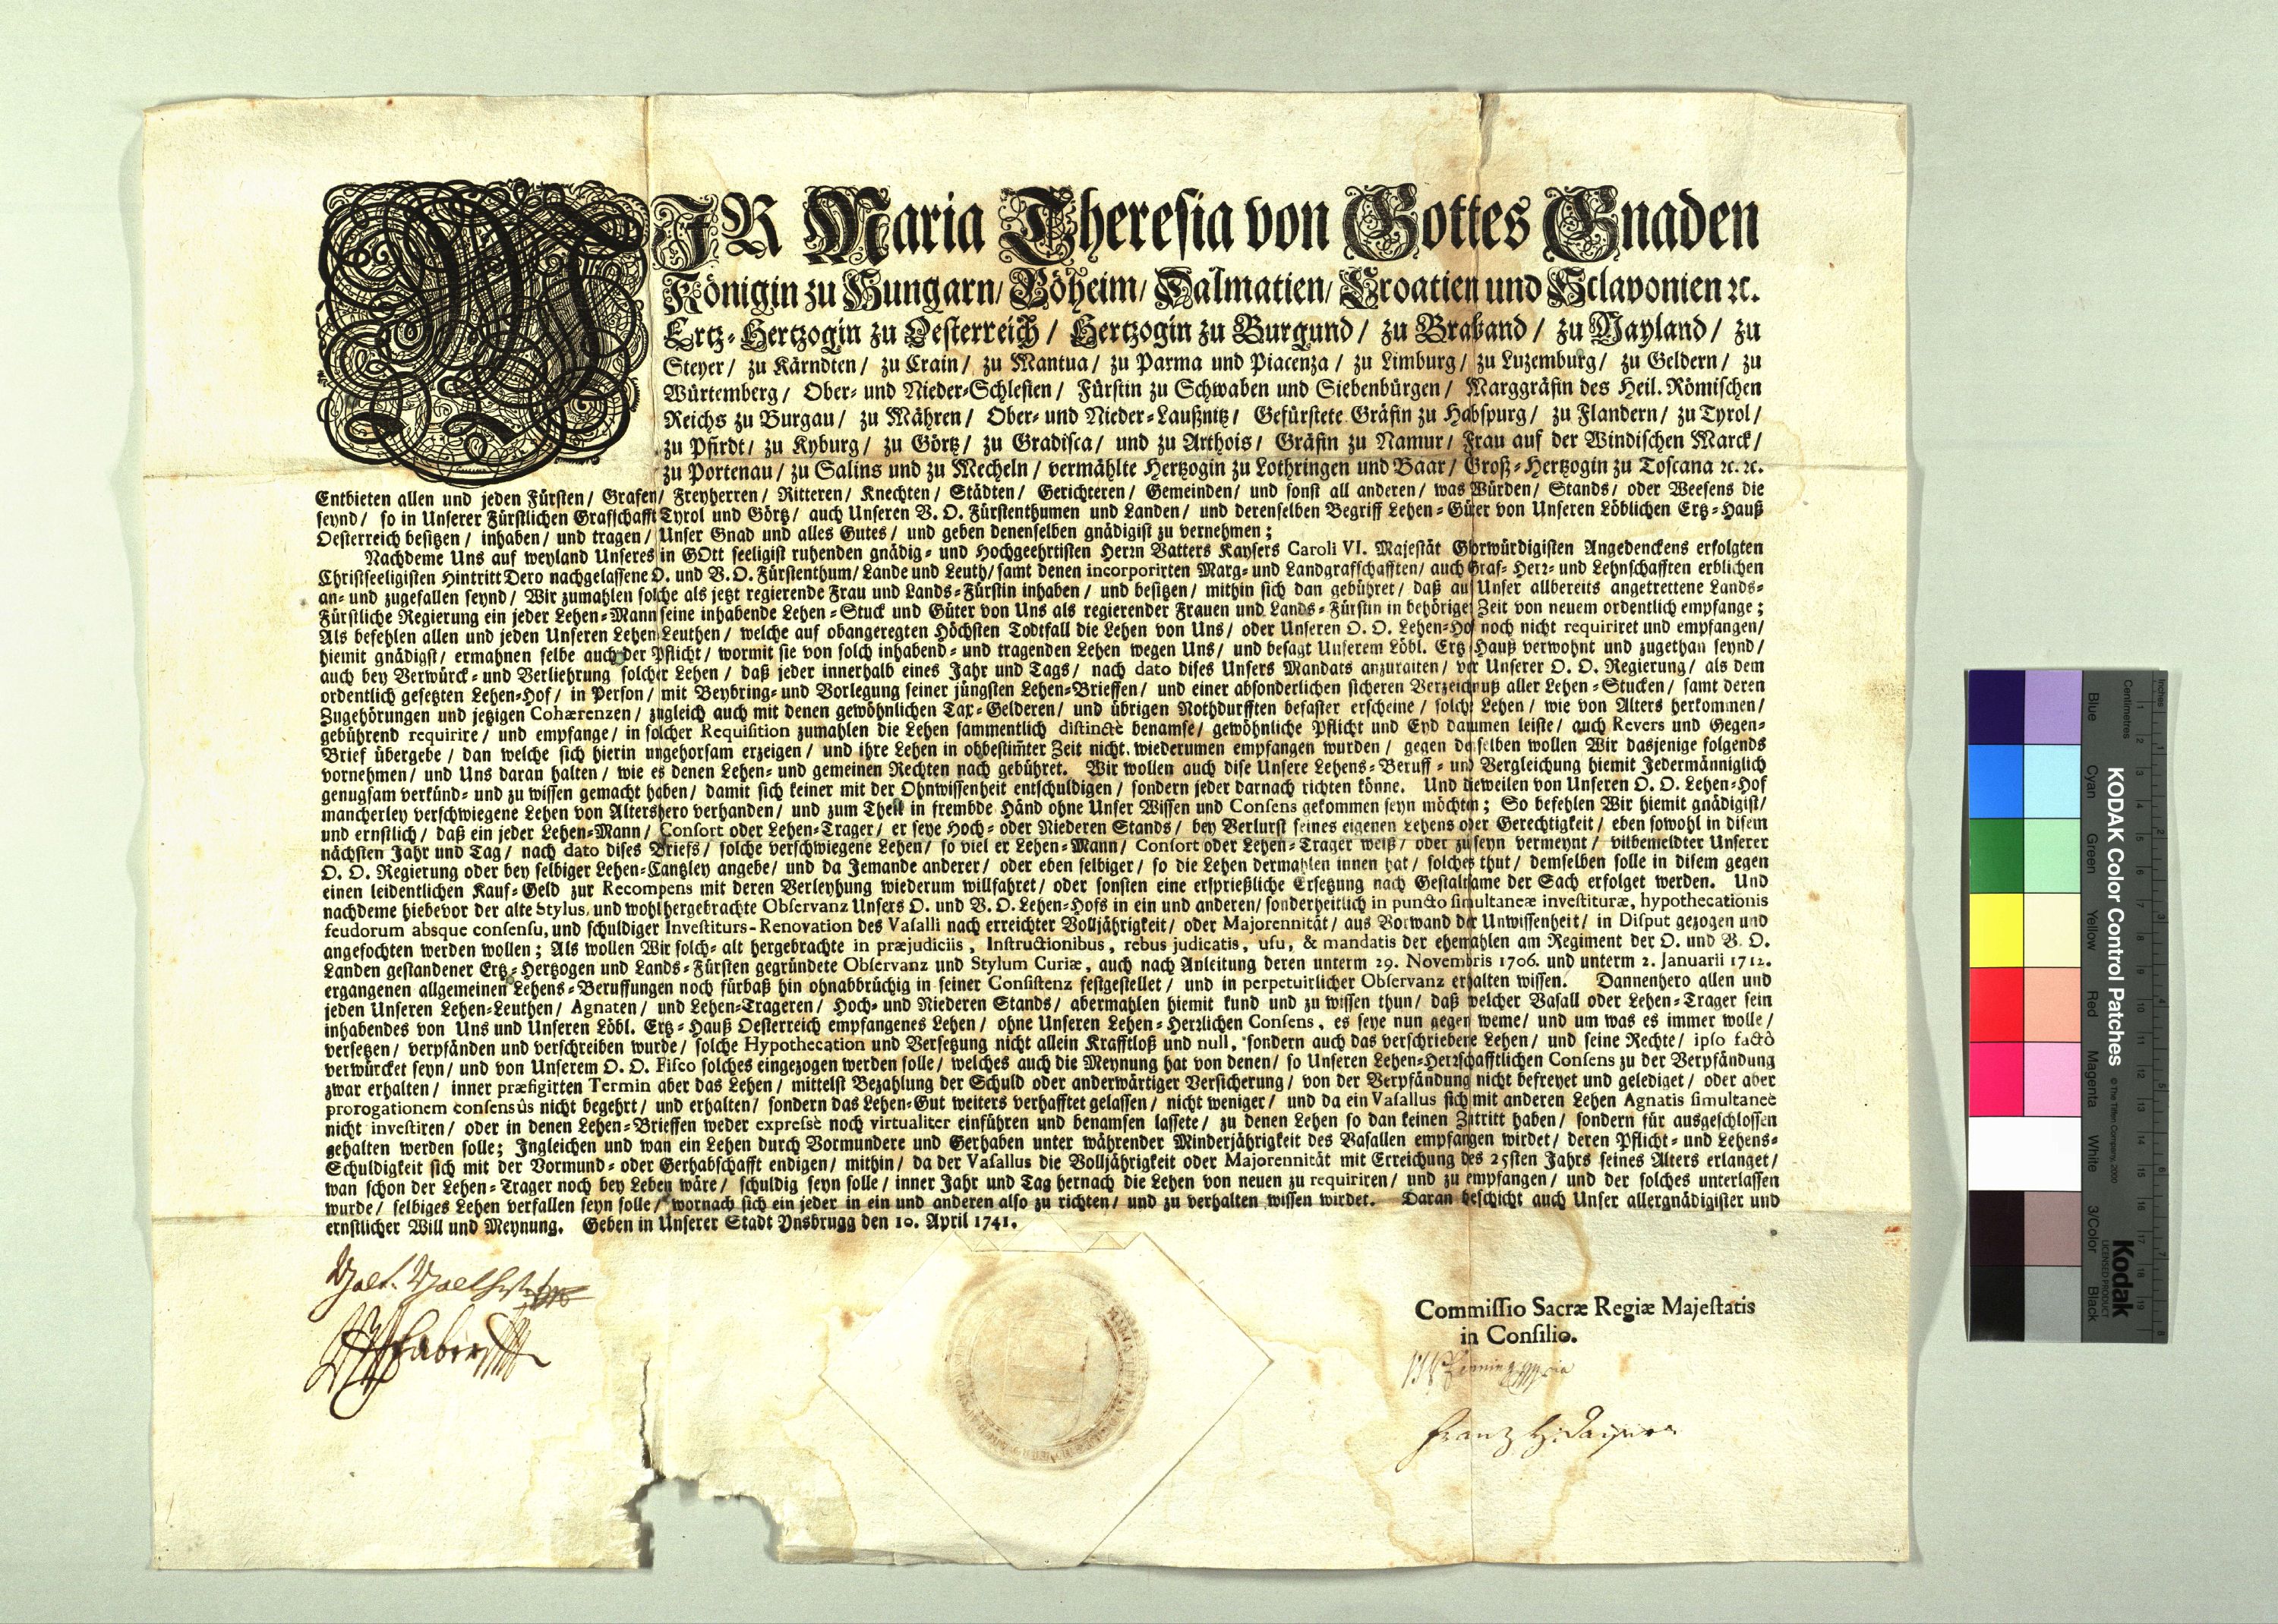 WIR Maria Theresia von Gottes Gnaden
Königin zu Hungarn/ Böheim/ Dalmatien/ Croatien und Sclavonien ꝛc.
Ertz-Hertzogin zu Oesterreich/ Hertzogin zu Burgund/ zu Braband/ zu Mayland/ zu
Steyer/ zu Kärndten/ zu Crain/ zu Mantua/ zu Parma und Piacenza/ zu Limburg/ zu Luzemburg/ zu Geldern/ zu
Würtemberg/ Ober- und Nieder-Schlesien/ Fürstin zu Schwaben und Siebenbürgen/ Marggräfin des Heil. Römischen
Reichs zu Burgau/ zu Mähren/ Ober- und Nieder-Laußnitz/ Gefürstete Gräfin zu Habspurg/ zu Flandern/ zu Tyrol/
zu Pfirdt/ zu Kyburg/ zu Görtz/ zu Gradisca/ und zu Arthois/ Gräfin zu Namur/ Frau auf der Windischen Marck/
zu Portenau/ zu Salins und zu Mecheln/ vermählte Hertzogin zu Lothringen und Baar/ Groß-Hertzogin zu Toscana ꝛc. ꝛc.
Entbieten allen und jeden Fürsten/ Grafen/ Freyherren/ Ritteren/ Knechten/ Städten/ Gerichteren/ Gemeinden/ und sonst all anderen/ was Würden/ Stands/ oder Weesens die
seynd/ so in Unserer Fürstlichen Grafschafft Tyrol und Görtz/ auch Unseren V. O. Fürstenthumen und Landen/ und derenselben Begriff Lehen-Güter von Unseren Löblichen Ertz-Hauß
Oesterreich besitzen/ inhaben/ und tragen/ Unser Gnad und alles Gutes/ und geben denenselben gnädigist zu vernehmen;
Nachdeme Uns auf weyland Unseres in GOtt seeligist ruhenden gnädig- und Hochgeehrtisten Herrn Vatters Kaysers Caroli VI. Majestät Glorwürdigisten Angedenckens erfolgten
Christseeligisten Hintritt Dero nachgelassene O. und V. O. Fürstenthum/ Lande und Leuth/ samt denen incorporirten Marg- und Landgrafschafften/ auch Graf- Herr- und Lehnschafften erblichen
an- und zugefallen seynd/ Wir zumahlen solche als jetzt regierende Frau und Lands-Fürstin inhaben/ und besitzen/ mithin sich dan gebühret/ daß auf Unser allbereits angetrettene Lands-
Fürstliche Regierung ein jeder Lehen-Mann seine inhabende Lehen-Stuck und Güter von Uns als regierender Frauen und Lands-Fürstin in behöriger Zeit von neuem ordentlich empfange;
Als befehlen allen und jeden Unseren Lehen Leuthen/ welche auf obangeregten Höchsten Todtfall die Lehen von Uns/ oder Unseren O. O. Lehen-Hof noch nicht requiriret und empfangen/
hiemit gnädigst/ ermahnen selbe auch der Pflicht/ wormit sie von solch inhabend- und tragenden Lehen wegen Uns/ und besagt Unserem Löbl. Ertz Hauß verwohnt und zugethan seynd/
auch bey Verwürck- und Verliehrung solcher Lehen/ daß jeder innerhalb eines Jahr und Tags/ nach dato dises Unsers Mandats anzuraiten/ vor Unserer O. O. Regierung/ als dem
ordentlich gesetzten Lehen-Hof/ in Person/ mit Beybring- und Vorlegung seiner jüngsten Lehen-Brieffen/ und einer absonderlichen sicheren Verzeichnuß aller Lehen-Stucken/ samt deren
Zugehörungen und jetzigen Cohærenzen/ zugleich auch mit denen gewöhnlichen Tax-Gelderen/ und übrigen Nothdurfften befaster erscheine/ solche Lehen/ wie von Alters herkommen/
gebührend requirire/ und empfange/ in solcher Requisition zumahlen die Lehen sammentlich distinctè benamse/ gewöhnliche Pflicht und Eyd daumen leiste/ auch Revers und Gegen-
Brief übergebe/ dan welche sich hierin ungehorsam erzeigen/ und ihre Lehen in obbestim̃ter Zeit nicht wiederumen empfangen wurden/ gegen denselben wollen Wir dasjenige folgends
vornehmen/ und Uns daran halten/ wie es denen Lehen- und gemeinen Rechten nach gebühret. Wir wollen auch dise Unsere Lehens-Beruff- und Vergleichung hiemit Jedermänniglich
genugsam verkünd- und zu wissen gemacht haben/ damit sich keiner mit der Ohnwissenheit entschuldigen/ sondern jeder darnach richten könne. Und dieweilen von Unseren O. O. Lehen-Hof
mancherley verschwiegene Lehen von Altershero verhanden/ und zum Theil in frembde Händ ohne Unser Wissen und Consens gekommen seyn möchten; So befehlen Wir hiemit gnädigist/
und ernstlich/ daß ein jeder Lehen-Mann/ Consort oder Lehen-Trager/ er seye Hoch- oder Niederen Stands/ bey Verlurst seines eigenen Lehens oder Gerechtigkeit/ eben sowohl in disem
nächsten Jahr und Tag/ nach dato dises Briefs/ solche verschwiegene Lehen/ so viel er Lehen-Mann/ Consort oder Lehen-Trager weiß/ oder zu seyn vermeynt/ vilbemeldter Unserer
O. O. Regierung oder bey selbiger Lehen-Cantzley angebe/ und da Jemande anderer/ oder eben selbiger/ so die Lehen dermahlen innen hat/ solches thut/ demselben solle in disem gegen
einen leidentlichen Kauf-Geld zur Recompens mit deren Verleyhung wiederum willfahret/ oder sonsten eine ersprießliche Ersetzung nach Gestaltsame der Sach erfolget werden. Und
nachdeme hiebevor der alte Stylus, und wohlhergebrachte Observanz Unsers O. und V. O. Lehen-Hofs in ein und anderen/ sonderheitlich in puncto simultaneæ investituræ, hypothecationis
feudorum absque consensu, und schuldiger Investiturs-Renovation des Vasalli nach erreichter Volljährigkeit/ oder Majorennität/ aus Vorwand der Unwissenheit/ in Disput gezogen und
angefochten werden wollen; Als wollen Wir solch- alt hergebrachte in præjudiciis, Instructionibus, rebus judicatis, usu, & mandatis der ehemahlen am Regiment der O. und V. O.
Landen gestandener Ertz-Hertzogen und Lands-Fürsten gegründete Observanz und Stylum Curiæ, auch nach Anleitung deren unterm 29. Novembris 1706. und unterm 2. Januarii 1712.
ergangenen allgemeinen Lehens-Beruffungen noch fürbaß hin ohnabbrüchig in seiner Consistenz festgestellet/ und in perpetuirlicher Observanz erhalten wissen. Dannenhero allen und
jeden Unseren Lehen-Leuthen/ Agnaten/ und Lehen-Trageren/ Hoch- und Niederen Stands/ abermahlen hiemit kund und zu wissen thun/ daß welcher Vasall oder Lehen-Trager sein
inhabendes von Uns und Unseren Löbl. Ertz-Hauß Oesterreich empfangenes Lehen/ ohne Unseren Lehen-Herrlichen Consens, es seye nun gegen weme/ und um was es immer wolle/
versetzen/ verpfänden und verschreiben wurde/ solche Hypothecation und Versetzung nicht allein Krafftloß und null, sondern auch das verschriebene Lehen/ und seine Rechte/ ipso factò
verwürcket seyn/ und von Unserem O. O. Fisco solches eingezogen werden solle/ welches auch die Meynung hat von denen/ so Unseren Lehen-Herrschafftlichen Consens zu der Verpfändung
zwar erhalten/ inner præfigirten Termin aber das Lehen/ mittelst Bezahlung der Schuld oder anderwärtiger Versicherung/ von der Verpfändung nicht befreyet und gelediget/ oder aber
prorogationem consensûs nicht begehrt/ und erhalten/ sondern das Lehen-Gut weiters verhafftet gelassen/ nicht weniger/ und da ein Vasallus sich mit anderen Lehen Agnatis simultaneè
nicht investiren/ oder in denen Lehen-Brieffen weder expressè noch virtualiter einführen und benamsen lassete/ zu denen Lehen so dan keinen Zutritt haben/ sondern für ausgeschlossen
gehalten werden solle; Ingleichen und wan ein Lehen durch Vormundere und Gerhaben unter währender Minderjährigkeit des Vasallen empfangen wirdet/ deren Pflicht- und Lehens-
Schuldigkeit sich mit der Vormund- oder Gerhabschafft endigen/ mithin/ da der Vasallus die Volljährigkeit oder Majorennität mit Erreichung des 25sten Jahrs seines Alters erlanget/
wan schon der Lehen-Trager noch bey Leben wäre/ schuldig seyn solle/ inner Jahr und Tag hernach die Lehen von neuen zu requiriren/ und zu empfangen/ und der solches unterlassen
wurde/ selbiges Lehen verfallen seyn solle/ wornach sich ein jeder in ein und anderen also zu richten/ und zu verhalten wissen wirdet. Daran beschicht auch Unser allergnädigister und
ernstlicher Will und Meynung. Geben in Unserer Stadt Ynsbrugg den 10. April 1741.
Commissio Sacræ Regiæ Majestatis
in Consilio.
Franz
KODAK Color Control Patches
Kodak
LICENSED PRODUCT
© The Tiffen Company, 2000
Inches
Centimetres
Blue
Cyan
Green
Yellow
Red
Magenta
White
3/Color
Black